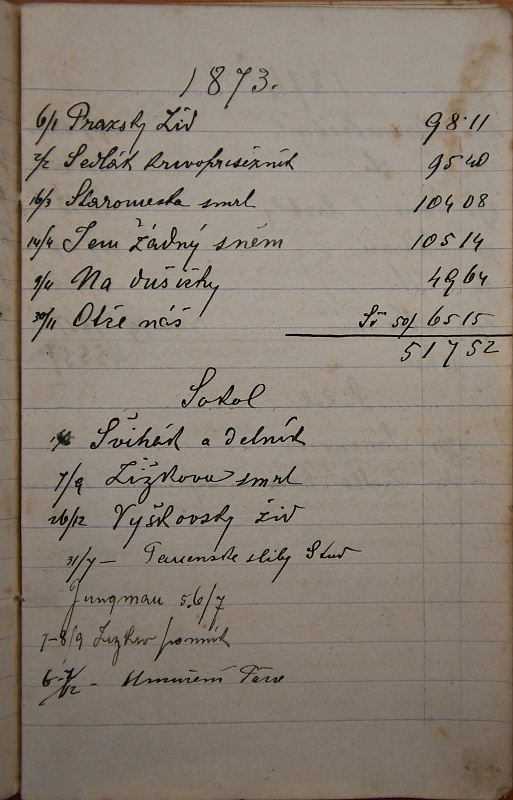 1873.
6/1 Prazsky Žid 98·11
2/2 Sedlák krivoprisěžník 95 40
16/3 Staromestska smrt 104 08
14/4 Sem Žádný sněm 105 14
9/11 Na dušičky 49 64
30/11 Otče náš 50/ 65 15
517 52
Sokol
Švihák a delník
7/9 Žižkova smrt
26/12 Vyšehovsky žid
31/7 – sliby Stud
Jungman 5.6/7
7–8/9 Zizkov pomnik
Umučení